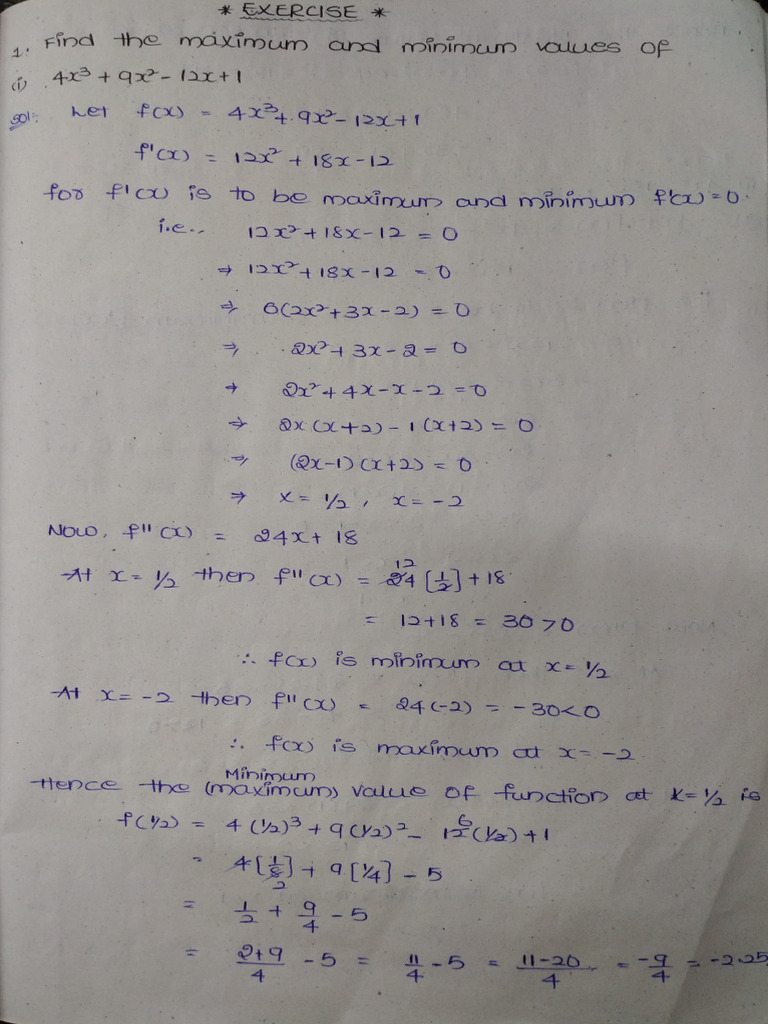 * EXERCISE *
1. Find the maximum and minimum values of
(i) 4x³ + 9x² - 12x + 1
Sol:- Let f(x) = 4x³ + 9x² - 12x + 1
f'(x) = 12x² + 18x - 12
for f'(x) is to be maximum and minimum f'(x) = 0.
i.e.. 12x² + 18x - 12 = 0
⇒ 12x² + 18x - 12 = 0
⇒ 6(2x² + 3x - 2) = 0
⇒ 2x² + 3x - 2 = 0
⇒ 2x² + 4x - x - 2 = 0
⇒ 2x(x+2) - 1(x+2) = 0
⇒ (2x-1)(x+2) = 0
⇒ x = 1/2, x = -2
Now, f''(x) = 24x + 18
At x = 1/2 then f''(x) = 24 12 [1/2] + 18
= 12 + 18 = 30 > 0
∴ f(x) is minimum at x = 1/2
At x = -2 then f''(x) = 24(-2) = -30 < 0
∴ f(x) is maximum at x = -2
Hence the Minimum (maximum) value of function at x = 1/2 is
f(1/2) = 4(1/2)³ + 9(1/2)² - 12 6 (1/2) + 1
= 4[1/8 2] + 9[1/4] - 5
= 1/2 + 9/4 - 5
= 2+9/4 - 5 = 11/4 - 5 = 11-20/4 = -9/4 = -2.25